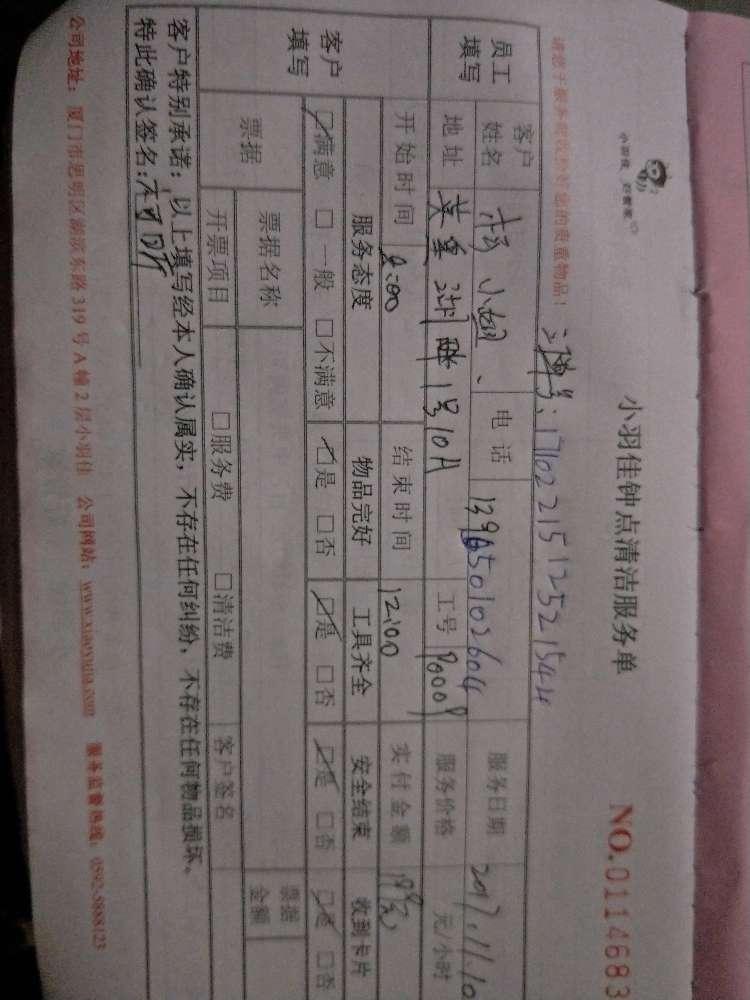 小羽佳钟点清洁服务单
NO.0114683
请您于服务前收检好您的贵重物品！
17102215125521544
员工填写
客户姓名 杨小姐 电话 13950102604 服务日期 2017.11.10
地址 1号10A 工号 80009 服务价格 元/小时
客户填写
开始时间 8:00 结束时间 12:00 实付金额
服务态度 物品完好 工具齐全 安全结束 收到卡片
☑满意 □一般 □不满意 ☑是 □否 ☑是 □否 ☑是 □否 ☑是 □否
票据 票据名称 票据金额
开票项目 □服务费 □清洁费 客户签名
客户特别承诺：以上填写经本人确认属实，不存在任何纠纷、不存在任何物品损坏。
特此确认签名：
公司地址：厦门市思明区湖滨东路319号A幢2层小羽佳 公司网站：www.xiaoyujia.com 服务监督热线：0592-5888123